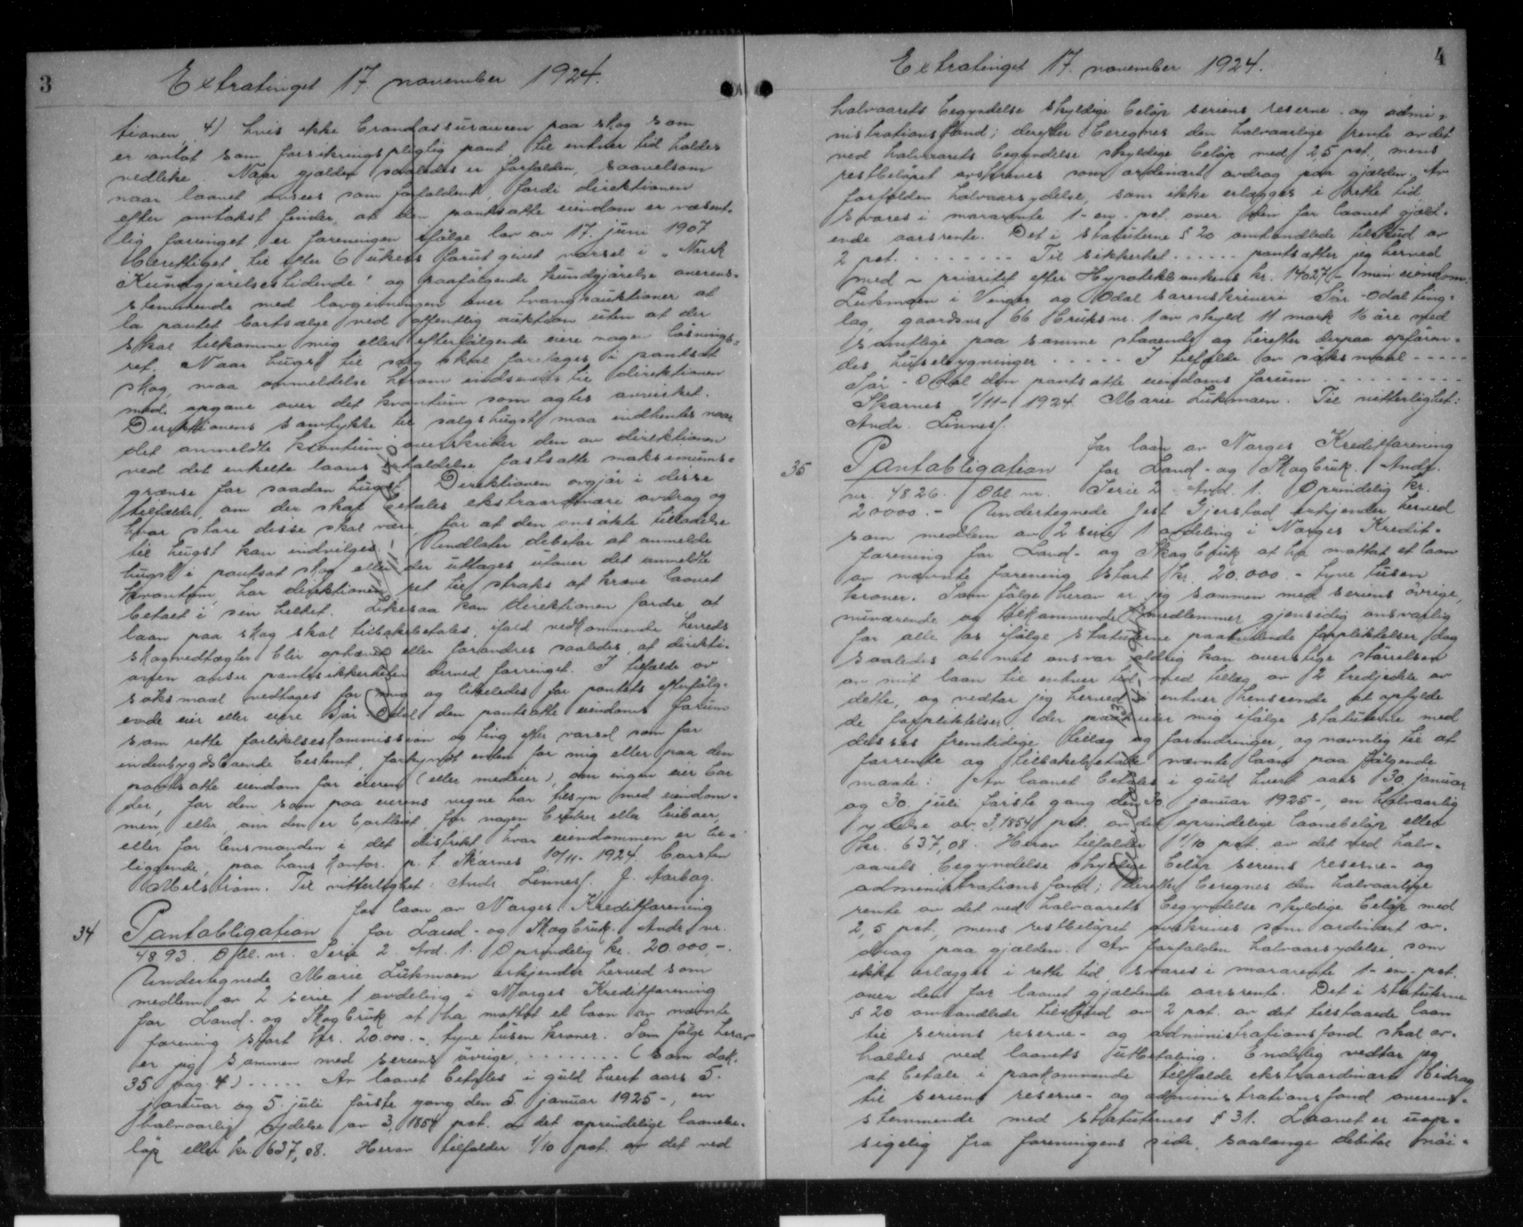 3
Extratinget 17 november 1924.
tionen, 4) hvis ikke brandassurancen paa skog som
er antat som forsikringspligtig pant til enhver tid holdes
vedlike. Naar gjælden saaledes er forfalden, saavelsom
naar laanet ansees som forfaldent, fordi direktionen
efter omtakst finder, at den pantsatte eiendom er væsent-
lig forringet er foreningen ifølge lov av 17. juni 1907
berettiget til efter 6 ukers forut givet varsel i „Norsk
Kundgjørelsestidende" og paafølgende kundgjørelse overens-
stemmende med lovgivningen over tvangsauktioner at
la pantet bortsælge ved offentlig auktion uten at der
skal tilkomme mig eller efterfølgende eiere nogen løsnings-
ret. Naar hugst til salg skal foretages i pantsat
skog, maa anmeldelse herom indsendes til direktionen
med opgave over det kvantum som agtes avvirket.
Direktionens samtykke til salgshugst maa indhentes naar
det anmeldte kvantum overskrider den av direktionen
ved det enkelte laans erholdelse fastsatte maksimums-
grænse for saadan hugst. Direktionen avgjør i disse
tilfælde, om der skal betales ekstraordinære avdrag og
hvor store disse skal være for at den ansøkte tilladelse
til hugst kan indvilges. Undlater debitor at anmelde
hugst i pantsat skog eller der uttages utover det anmeldte
kvantum, har direktionen ret til straks at kræve laanet
betalt i sin helhet. Likesaa kan direktionen fordre at
laan paa skog skal tilbakebetales, ifald vedkommende herreds
skogvedtægter blir ophævet eller forandres saaledes, at direkti-
onen anser pantesikkerheten derved forringet. I tilfælde av
søksmaal vedtages for mig og likeledes for pantets efterfølg-
ende eier eller eiere Sør-Odal den pantsatte eiendoms forum
som rette forlikelseskommission og ting efter varsel som for
indenbygdsboende bestemt, forkyndt enten for mig eller paa den
pantsatte eiendom for eieren (eller medeier), om ingen eier bor
der, for den som paa eierens vegne har tilsyn med eiendom-
men, eller, om den er bortleiet, for nogen bruker eller leieboer,
eller for lensmanden i det distrikt hvor eiendommen er be-
liggende, paa hans kontor. p. t. Skarnes 10/11-1924. Carsten
Melstrøm. Til vitterlighet: Andr. Linnes. J. Aarbog.
34
Pantobligation for laan av Norges Kreditforening
for Land- og Skogbruk. Andr. nr.
4893. Obl. nr. Serie 2 Avd. 1. Oprindelig kr. 20 000,-.
Undertegnede Marie Lukmoen erkjender herved som
medlem av 2 serie 1 avdeling i Norges Kreditforening
for Land- og Skogbruk at ha mottat et laan av nævnte
forening stort kr. 20.000.-, tyve tusen kroner. Som følge herav
er jeg sammen med seriens øvrige ........ (som dok.
35 pag. 4) ..... Av laanet betales i guld hvert aars 5.
januar og 5. juli første gang den 5. januar 1925-, en
halvaarlig ydelse av 3,1854 pct. av det oprindelige laanebe-
løp eller kr. 637,08. Herav tilfalder 1/10 pct. av det ved
4
Extratinget 17. november 1924.
halvaarets begyndelse skyldige beløp seriens reserve- og admi-
nistrationsfond; derefter beregnes den halvaarlige rente av det
ved halvaarets begyndelse skyldige beløp med 2,5 pct., mens
restbeløpet avskrives som ordinært avdrag paa gjælden. Av
forfalden halvaarsydelse, som ikke erlægges i rette tid,
svares i morarente 1- en- pct. over den for laanet gjæld-
ende aarsrente. Det i statuterne § 20 omhandlede tilskud av
2 pct. ........ Til sikkerhet ...... pantsætter jeg herved
med ~ prioritet efter Hypotekbankens kr. min eiendom
Lukmoen i Vinger og Odal sorenskriveri Sør-Odal ting-
lag, gaardsnr. 66 bruksnr. 1 av skyld 11 mark 16 øre med
samtlige paa samme staaende og herefter derpaa opføren-
des husebygninger ..... I tilfælde av søksmaal .....
Sør-Odal den pantsatte eiendoms forum ..........
Skarnes 1/11-1924. Marie Lukmoen. Til vitterlighet:
Andr. Linnes.
35
Pantobligation for laan av Norges Kreditforening
for Land- og Skogbruk. Andr.
nr. 4826. Obl. nr. Serie 2. Avd. 1. Oprindelig kr.
20000.- Undertegnede Gjerstad erkjender herved
som medlem av 2 serie 1 avdeling i Norges Kredit-
forening for Land- og Skogbruk at ha mottat et laan
av nævnte forening stort kr. 20.000.- tyve tusen
kroner. Som følge herav er jeg sammen med seriens øvrige,
nuværende og tilkommende medlemmer gjensidig ansvarlig
for alle os ifølge statuterne paahvilende forpliktelser, dog
saaledes at mit ansvar aldrig kan overstige størrelsen
av mit laan til enhver tid med tillæg av 2 tredjedele av
dette, og vedtar jeg herved i enhver henseende at opfylde
de forpliktelser der paahviler mig ifølge statuterne med
disses fremtidige tillæg og forandringer, og navnlig til at
forrente og tilbakebetale nævnte laan paa følgende
maate: Av laanet betales i guld hvert aars 30. januar
og 30. juli første gang den 30. januar 1925-, en halvaarlig
ydelse av 3,1854 pct. av det oprindelige laanebeløp eller
kr. 637,08. Herav tilfalder 1/10 pct. av det ved halv-
aarets begyndelse skyldige beløp seriens reserve- og
administrationsfond; derefter beregnes den halvaarlige
rente av det ved halvaarets begyndelse skyldige beløp med
2,5 pct., mens restbeløpet avskrives som ordinært av-
drag paa gjælden. Av forfalden halvaarsydelse, som
ikke erlægges i rette tid svares i morarente 1- en- pct.
over den for laanet gjældende aarsrente. Det i statuterne
§ 20 omhandlede tilskud av 2 pct. av det tilstaaede laan
til seriens reserve- og administrationsfond skal av-
holdes ved laanets utbetaling. Endelig vedtar jeg
at betale i paakommende tilfælde ekstraordinært bidrag
til seriens reserve- og administrationsfond overens-
stemmende med statuternes § 31. Laanet er uop-
sigelig fra foreningens side, saalænge debitor nøi-